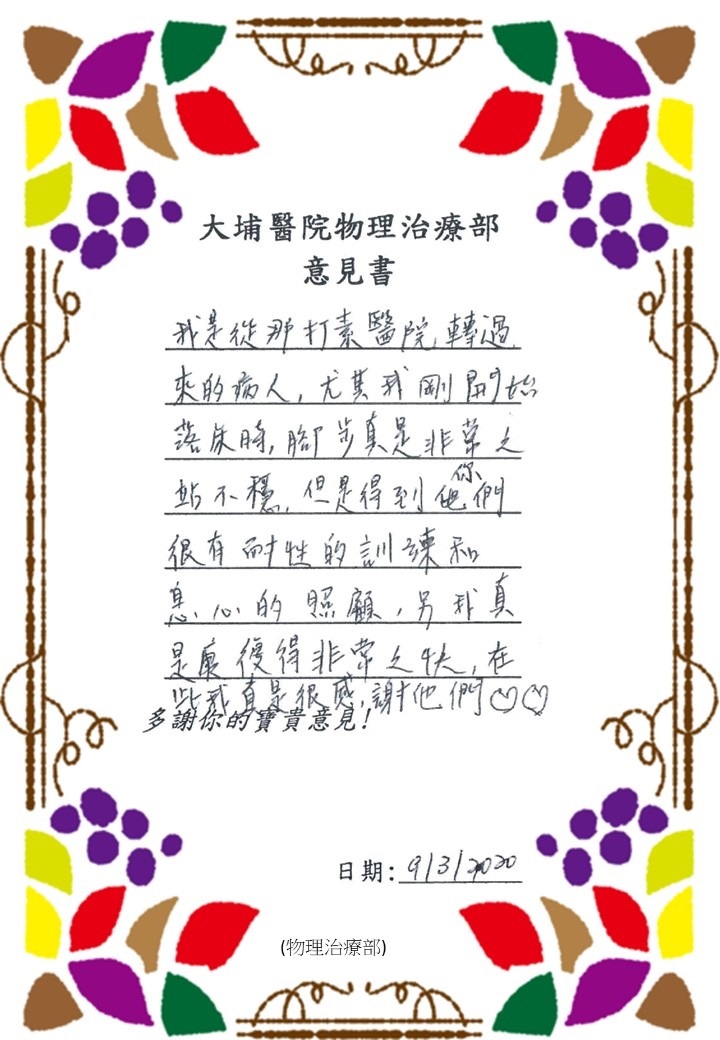 大埔醫院物理治療部
意見書
我是從那打素醫院,轉過
來的病人,尤其我剛開始
落床時,腳步真是非常之
站不穩,但是得到他你們
很有耐性的訓練和
息心的照顧,另我真
是康復得非常之快,在
些我真是很感謝他們♡♡
多謝你的寶貴意見!
日期:9/3/2020
(物理治療部)